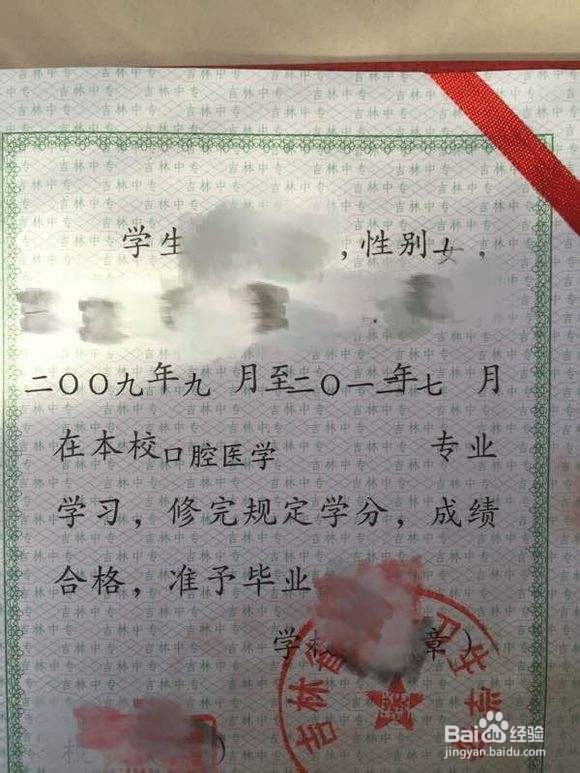 学生 ，性别 女，
二〇〇九年九 月至二〇一二年七 月
在本校口腔医学 专业
学习，修完规定学分，成绩
合格，准予毕业
学 章）
吉林省
Bai百度经验
jingyan.baidu.com